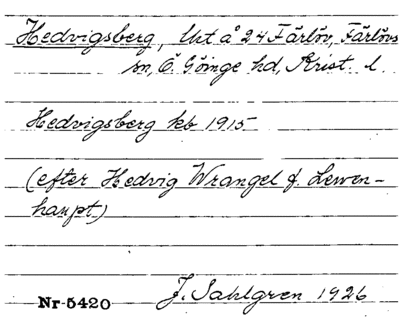 Hedvigsberg, lht å 24 Färlöv, Färlövs
sn, Ö. Göinge hd, Krist. l.
Hedvigsberg kb 1915
(efter Hedvig Wrangel f. Lewen-
haupt)
Nr 5420 J. Sahlgren 1926